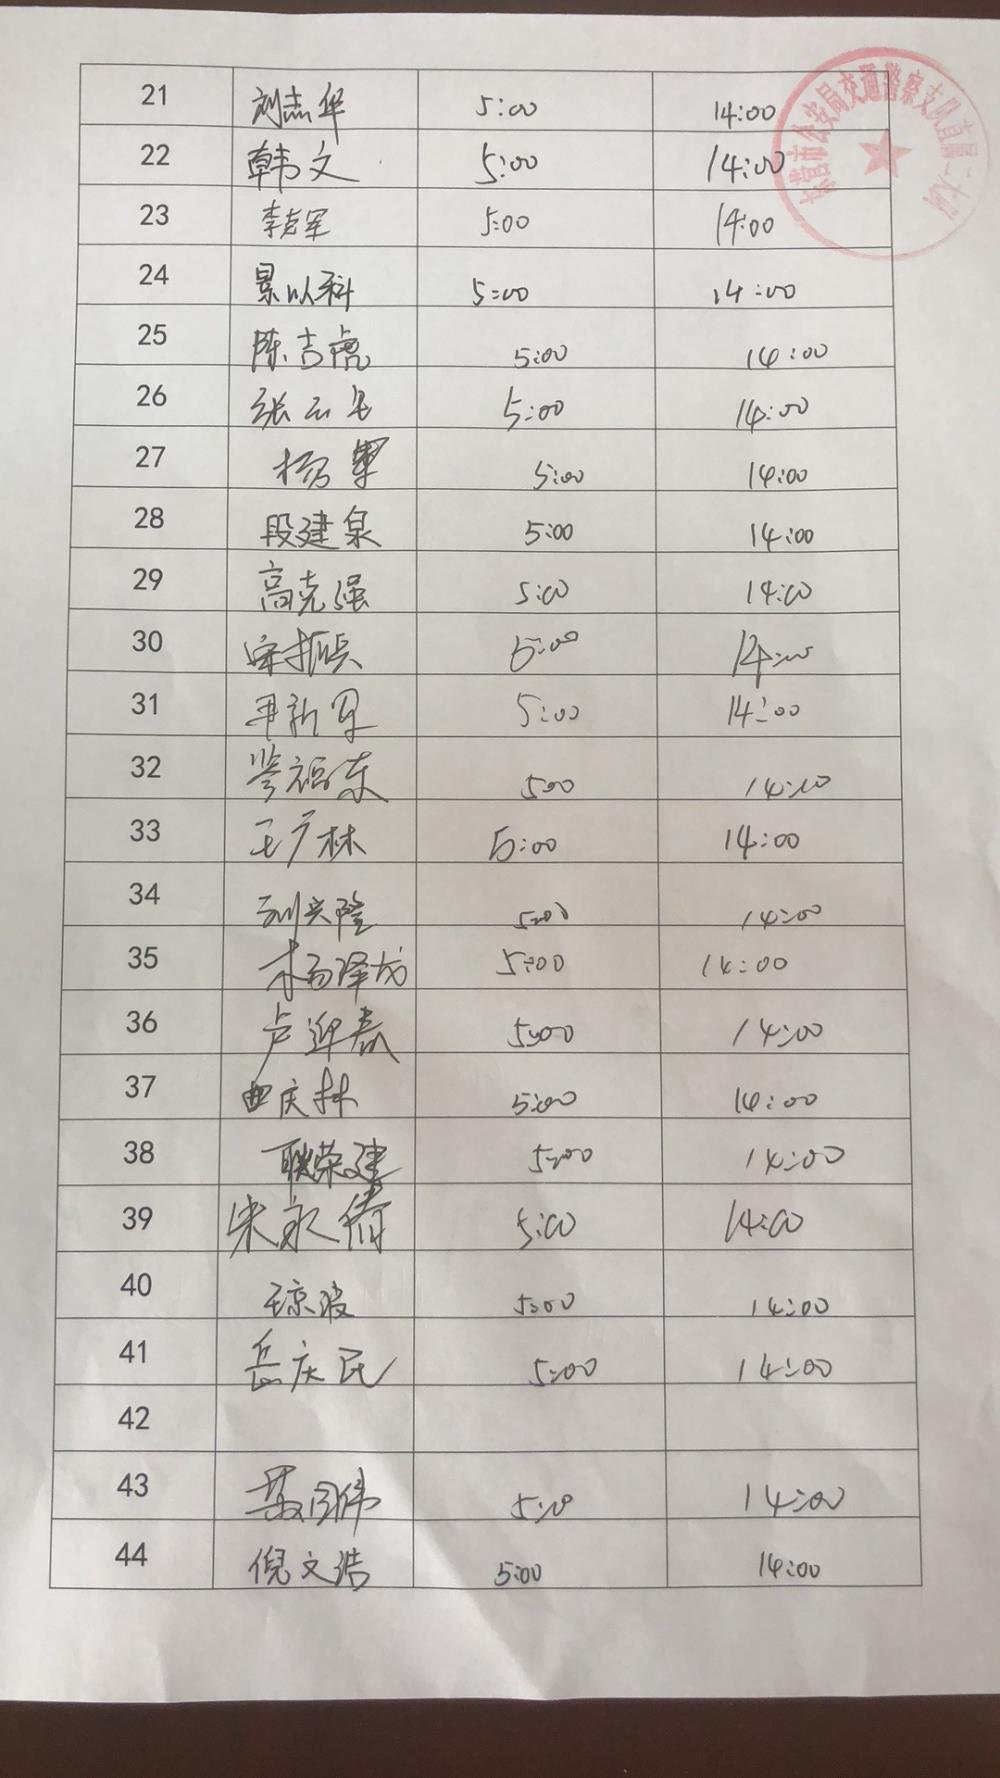 东营市公安局交通警察支队直属一大队
21 刘志华 5:00 14:00
22 韩文 5:00 14:00
23 李克军 5:00 14:00
24 景以科 5:00 14:00
25 陈吉虎 5:00 14:00
26 张 5:00 14:00
27 杨军 5:00 14:00
28 段建泉 5:00 14:00
29 高克强 5:00 14:00
30 宋振兵 5:00 14:00
31 新军 5:00 14:00
32 福东 5:00 14:00
33 王广林 5:00 14:00
34 刘兴隆 5:00 14:00
35 杨泽龙 5:00 14:00
36 卢迎春 5:00 14:00
37 曲庆林 5:00 14:00
38 耿荣建 5:00 14:00
39 宋永倩 5:00 14:00
40 王琼波 5:00 14:00
41 岳庆民 5:00 14:00
42
43 伟 5:00 14:00
44 倪文浩 5:00 14:00